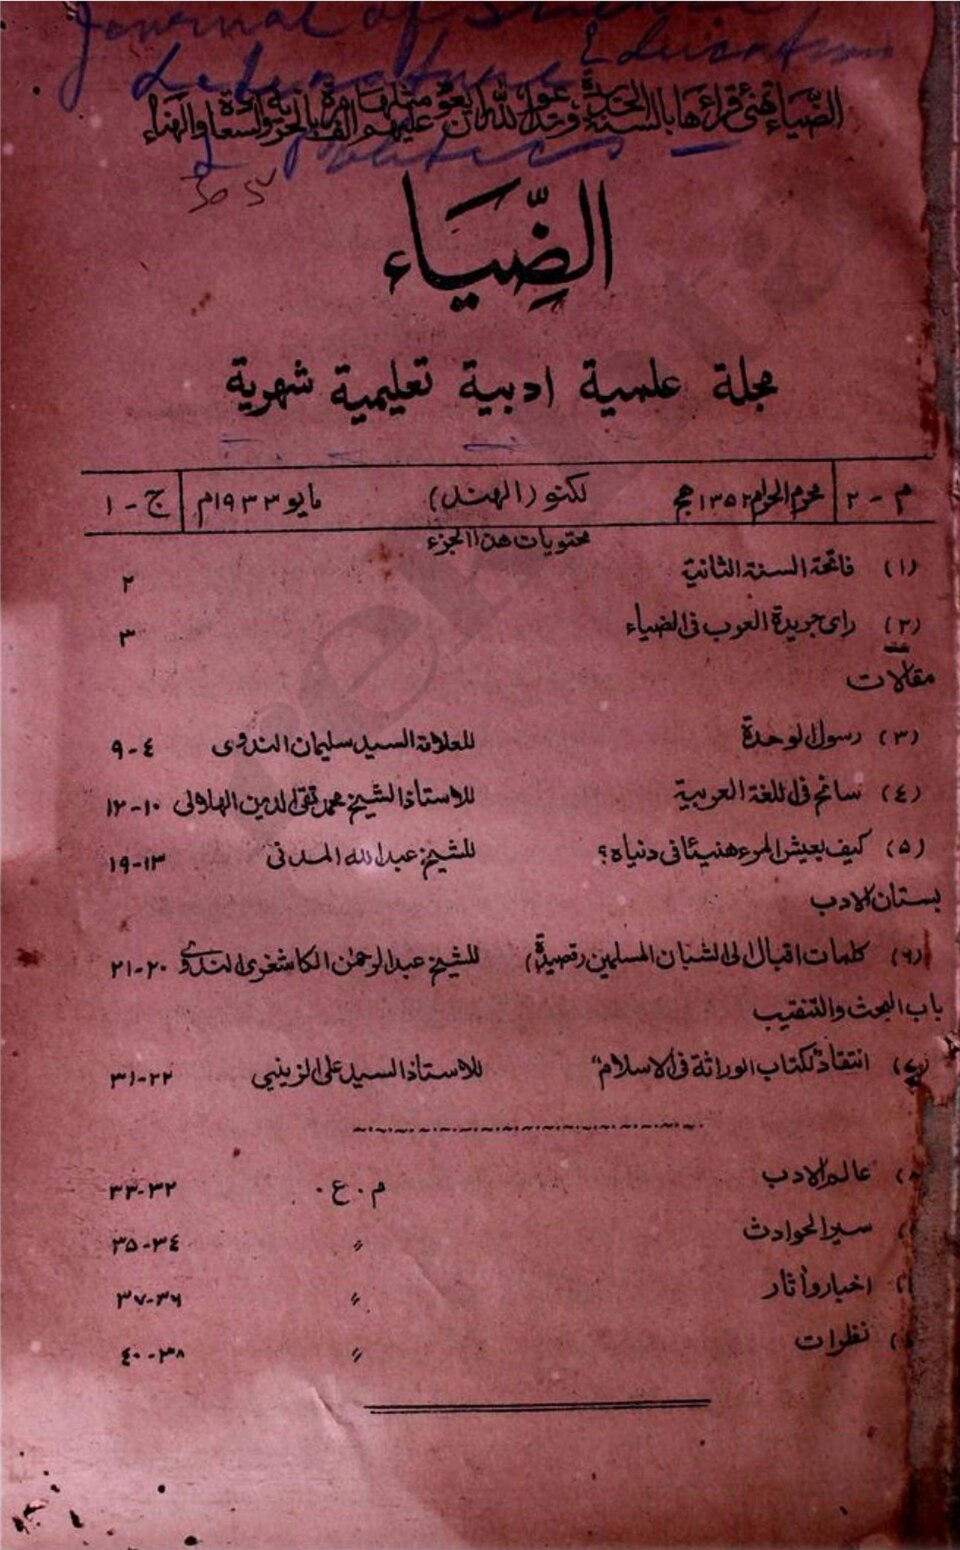 Journal of Science
Literature Education
Politics
الضياء تهنئ قراءها بالسنة الجديدة وتدعو الله ان يعود عليهم
٣٥٢
الضِّيَاء
مجلة علمية ادبية تعليمية شهرية
م - ٢ محرم الحرام ١٣٥٢ هج لكنو (الهند) مايو ١٩٣٣م ج - ١
محتويات هذا الجزء
(١) فاتحة السنة الثانية ٢
(٢) راى جريدة العرب فى الضياء ٣
مقالات
(٣) رسول الوحدة للعلامة السيد سليمان الندوى ٤-٩
(٤) سانح فى اللغة العربية للاستاذ الشيخ محمد تقى الدين الهلالى ١٠-١٢
(٥) كيف يعيش المرء هنيئا فى دنياه؟ للشيخ عبد الله المدنى ١٣-١٩
بستان الادب
(٦) كلمات اقبال الى الشبان المسلمين (قصيدة) للشيخ عبد الرحمن الكاشغرى الندوى ٢٠-٢١
باب البحث والتنقيب
(٧) انتقاد لكتاب الوراثة فى الاسلام" للاستاذ السيد على الزينبى ٢٢-٣١
عالم الادب م . ع . ٣٢-٣٣
سير الحوادث " ٣٤-٣٥
اخبار وآثار " ٣٦-٣٧
نظرات " ٣٨-٤٠